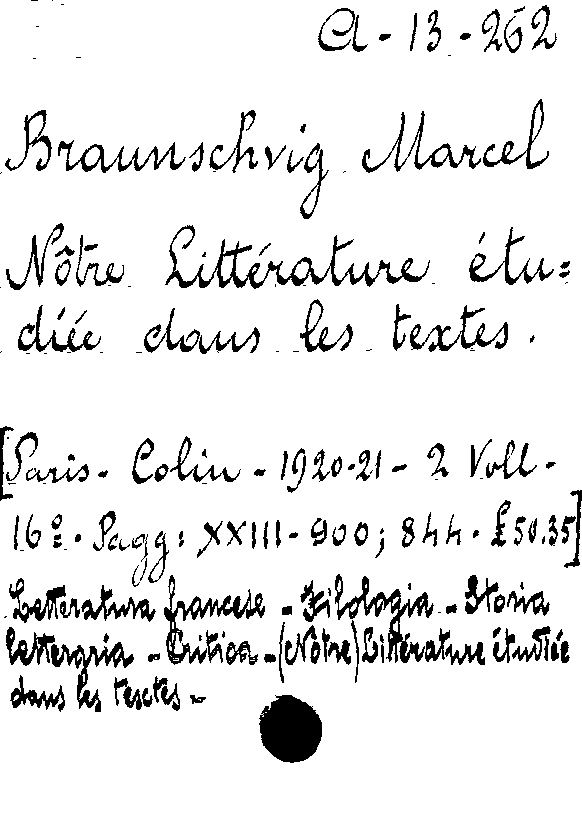 A - 13 - 262
Braunschvig Marcel
Nôtre Littérature étu=
diée dans les textes.
[Paris - Colin - 1920-21 - 2 Voll -
16º. Pagg: XXIII - 900; 844. £50.35]
Letteratura francese - Filologia - Storia
letteraria - Critica - (Nôtre) Littérature étudiée
dans les textes -